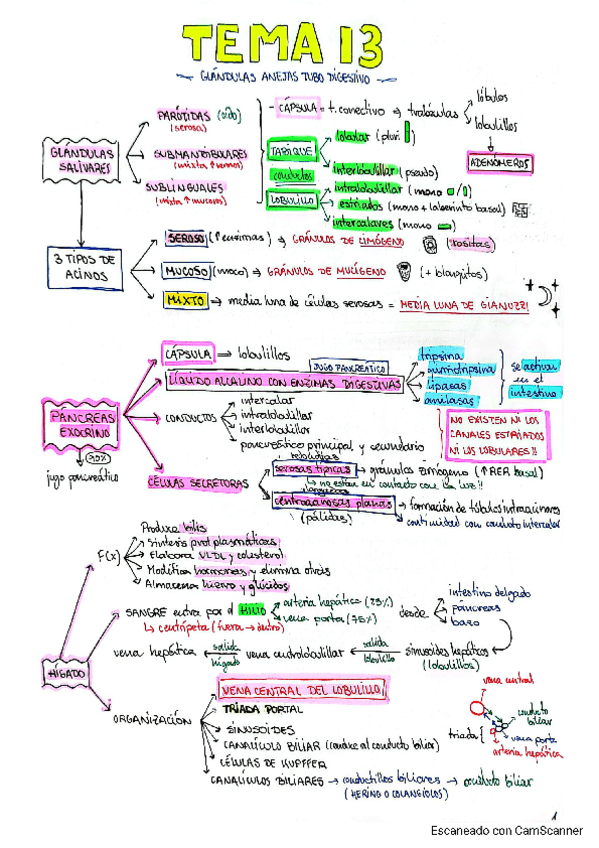 TEMA 13
GLÁNDULAS ANEJAS TUBO DIGESTIVO
GLÁNDULAS SALIVARES
PARÓTIDAS (oído)
(serosa)
SUBMANDIBULARES
(mixta ↑ serosa)
SUBLINGUALES
(mixta ↑ mucosa)
CÁPSULA = t. conectivo → trabéculas → lóbulos
lobulillos
ADENÓMEROS
TABIQUE
conductos
LOBULILLO
lobular (plur.)
interlobulillar (pseudo)
intralobulillar (mono /)
estriados (mono + laberinto basal)
intercalares (mono)
3 TIPOS DE ACINOS
SEROSO (↑ enzimas) → GRÁNULOS DE CIMÓGENO (rositas)
MUCOSO (moco) → GRÁNULOS DE MUCÍGENO (+ blanquitos)
MIXTO → media luna de células serosas = MEDIA LUNA DE GIANUZZI
PÁNCREAS EXOCRINO
jugo pancreático
CÁPSULA → lobulillos
JUGO PANCREÁTICO
LÍQUIDO ALCALINO CON ENZIMAS DIGESTIVAS
tripsina
quimotripsina
lipasas
amilasas
se activan en el intestino
CONDUCTOS
intercalar
intralobulillar
interlobulillar
pancreático principal y secundario
NO EXISTEN NI LOS
CANALES ESTRIADOS
NI LOS LOBULARES!!
CÉLULAS SECRETORAS
serosas típicas → gránulos zimógeno (↑ RER basal)
no están en contacto con la luz!!
centroacinosas planas → formación de túbulos intraacinares
(pálidas)
continuidad con conducto intercalar
HÍGADO
F(x)
Produce bilis
Síntesis prot plasmáticas
Elabora VLDL y colesterol
Modifica hormonas y elimina otras
Almacena hierro y glúcidos
SANGRE entra por el HILIO
arteria hepática (25%)
vena porta (75%)
desde
intestino delgado
páncreas
bazo
↳ centrípeta (fuera → dentro)
vena hepática ← salida hígado vena centrolobulillar ← salida lobulillo sinusoides hepáticos
(lobulillos)
ORGANIZACIÓN
VENA CENTRAL DEL LOBULILLO
TRÍADA PORTAL
SINUSOIDES
CANALÍCULO BILIAR (conduce al conducto biliar)
CÉLULAS DE KUPFFER
CANALÍCULOS BILIARES → conductillos biliares → conducto biliar
(HERING O COLANGÍOLOS)
vena central
conducto biliar
triada
vena porta
arteria hepática
1
Escaneado con CamScanner